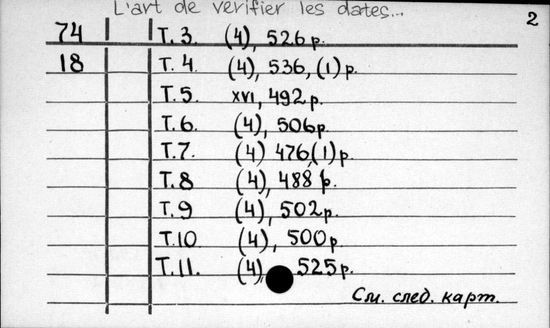 L'art de vérifier les dates... 2
74 T. 3. (4), 526 p.
18 T. 4. (4), 536, (1) p.
T. 5. XVI, 492 p.
T. 6. (4), 506 p.
T. 7. (4) 476, (1) p.
T. 8 (4), 488 p.
T. 9 (4), 502 p.
T. 10 (4), 500 p.
T. 11. (4), 525 p.
См. след. карт.